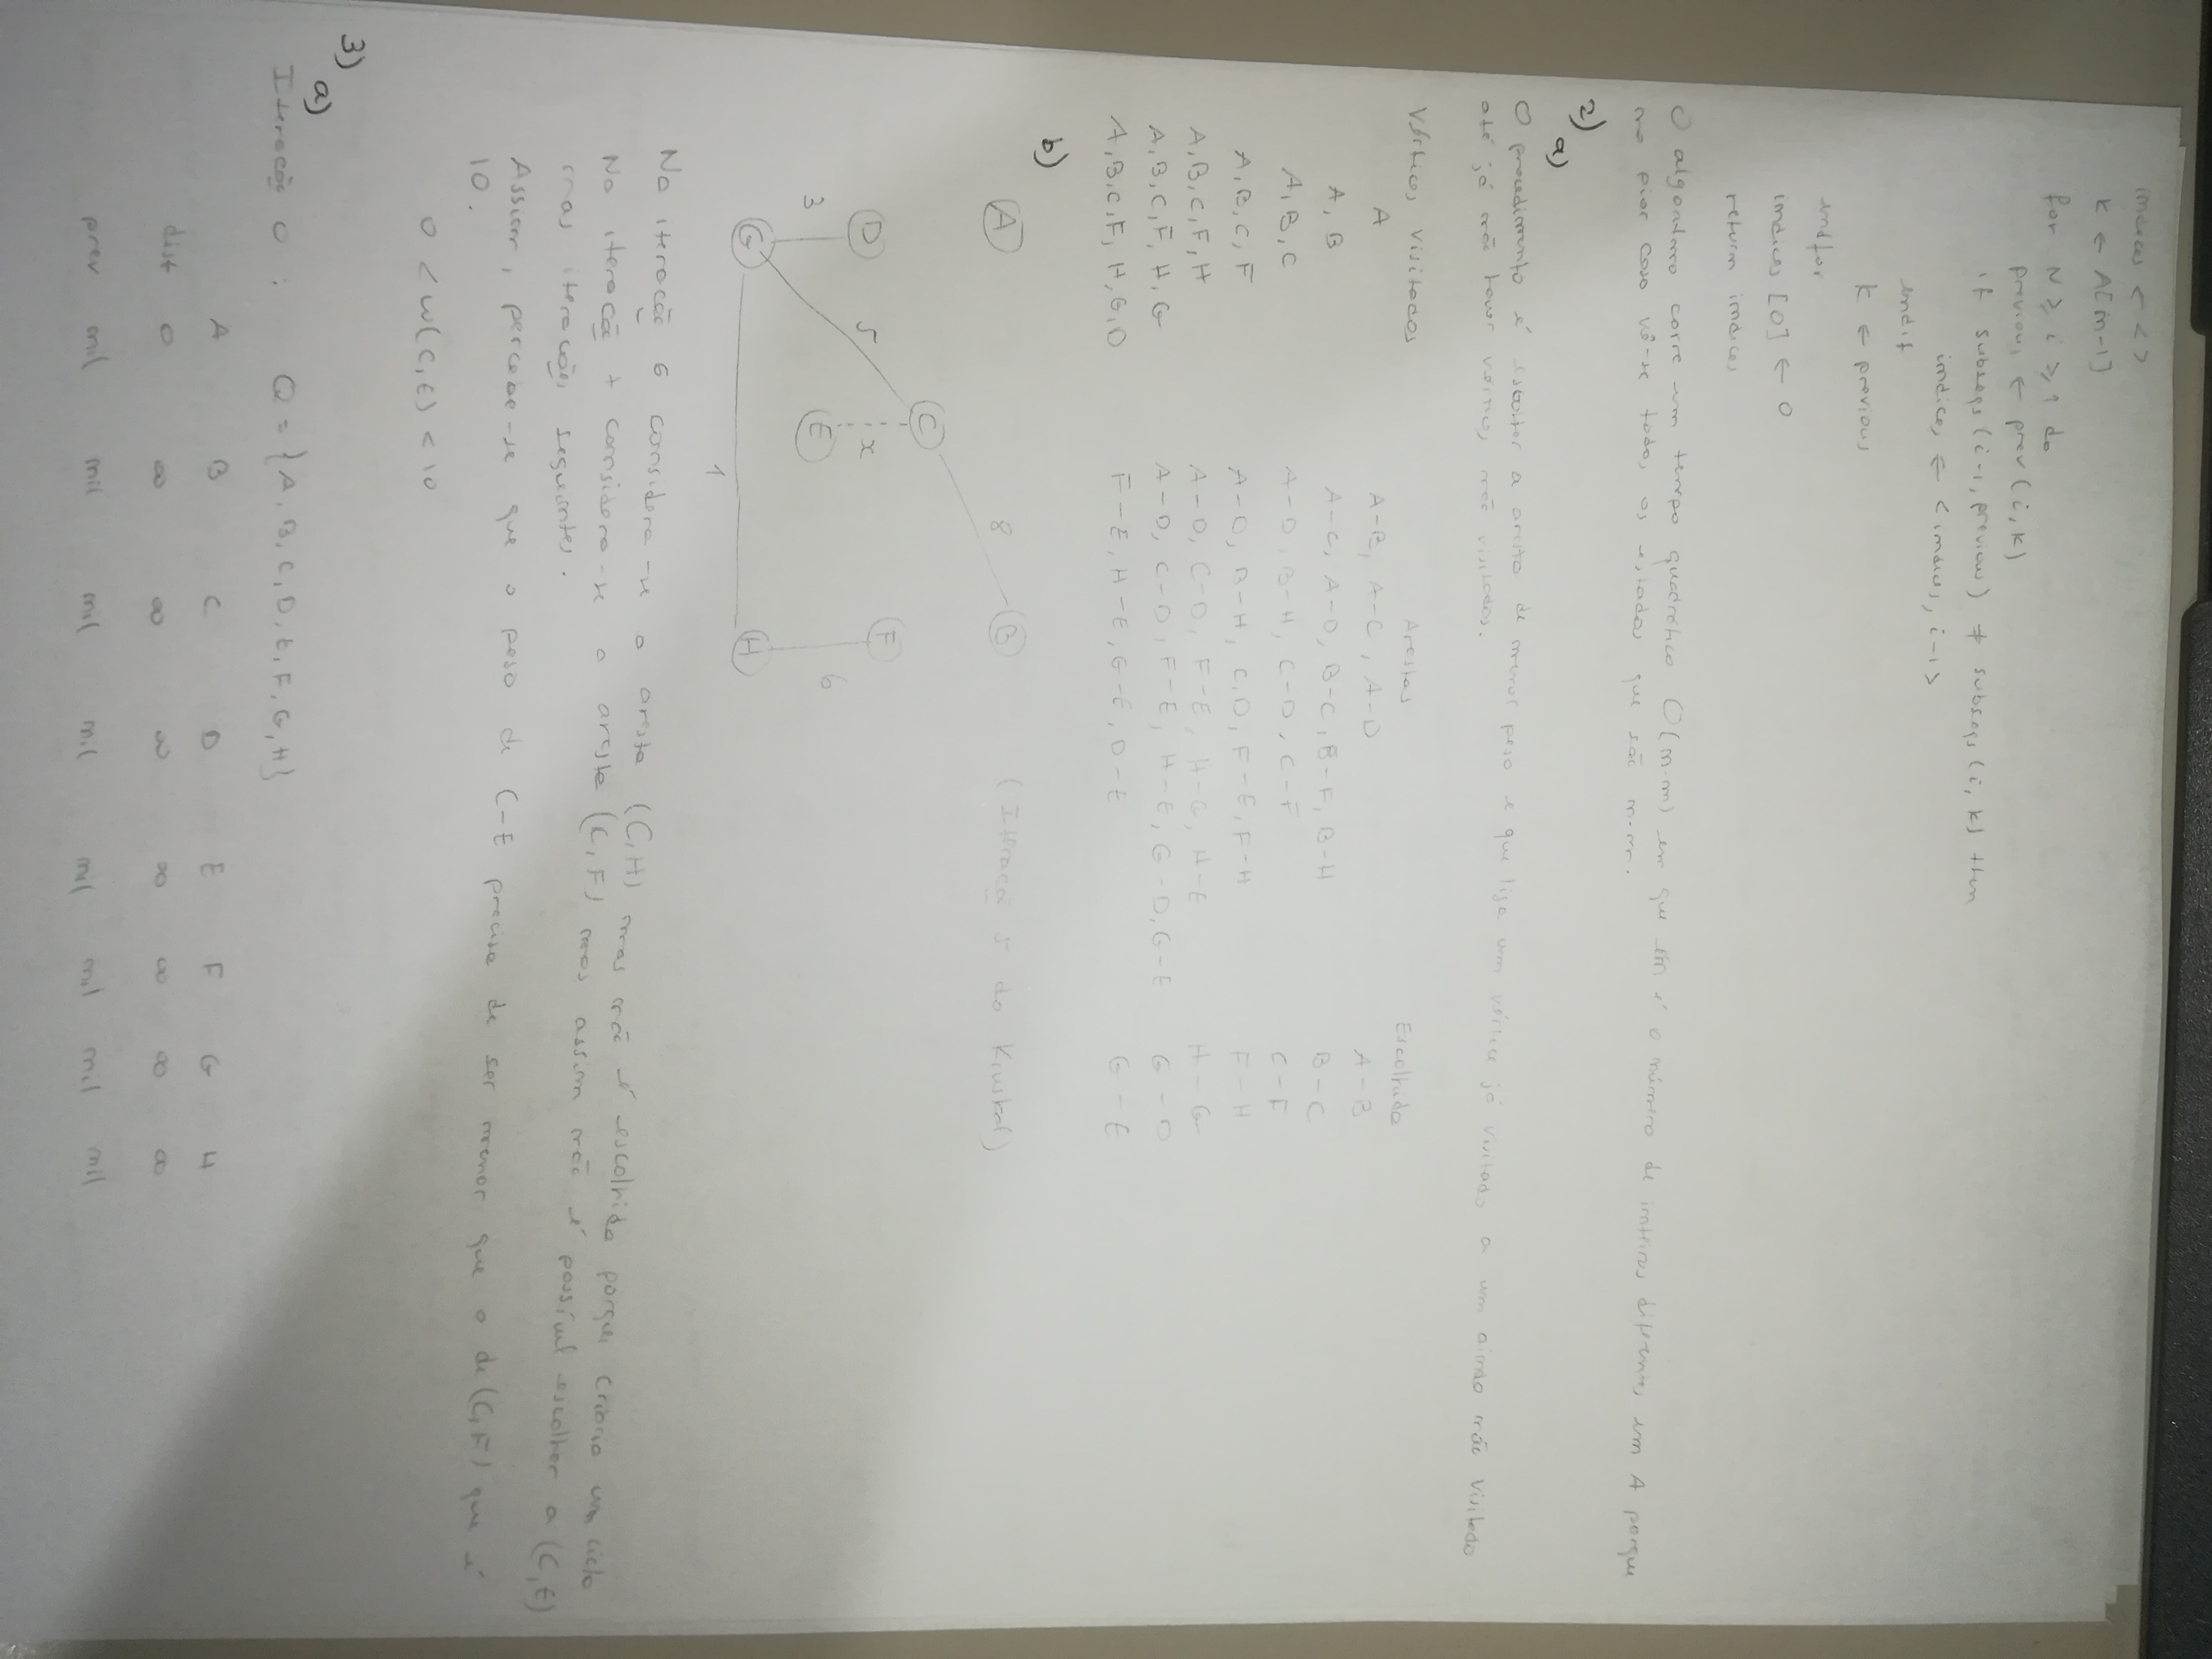 indices ← < >
k ← A[n-1]
for N ≥ i ≥ 1 do
previous ← prev(i, k)
if subseqs(i-1, previous) ≠ subseqs(i, k) then
indices ← <indices, i-1>
endif
k ← previous
endfor
indices [0] ← 0
return indices
O algoritmo corre em tempo quadrático O(n·m) em que m é o número de inteiros diferentes em A porque
no pior caso vê-se todos os estados que são n·m.
2)
a)
O procedimento é escolher a aresta de menor peso e que liga um vértice já visitado a um ainda não visitado
até já não haver vértices não visitados.
Vértices Visitados Arestas Escolhida
A A-B, A-C, A-D A-B
A, B A-C, A-D, B-C, B-F, B-H B-C
A, B, C A-D, B-H, C-D, C-F C-F
A, B, C, F A-D, B-H, C,D, F-E, F-H F-H
A, B, C, F, H A-D, C-D, F-E, H-G, H-E H-G
A, B, C, F, H, G A-D, C-D, F-E, H-E, G-D, G-E G-D
A, B, C, F, H, G, D F-E, H-E, G-E, D-E G-E
b)
A 8 B (Iteração 5 do Kruskal)
C
D 5 x F
3 E 6
G H
1
Na iteração 6 considera-se a aresta (C,H) mas não é escolhida porque criaria um ciclo
Na iteração 7 considera-se a aresta (C,F) mas assim não é possível escolher a (C,E)
nas iterações seguintes.
Assim, percebe-se que o peso de C-E precisa de ser menor que o de (C,F) que é
10.
0 < w(C,E) < 10
3)
a)
Iteração 0 : Q = {A, B, C, D, E, F, G, H}
A B C D E F G H
dist 0 ∞ ∞ ∞ ∞ ∞ ∞ ∞
prev nil nil nil nil nil nil nil nil